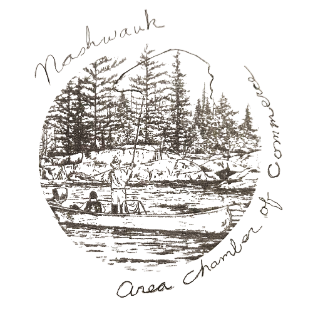 Nashwauk
Area Chamber of Commerce